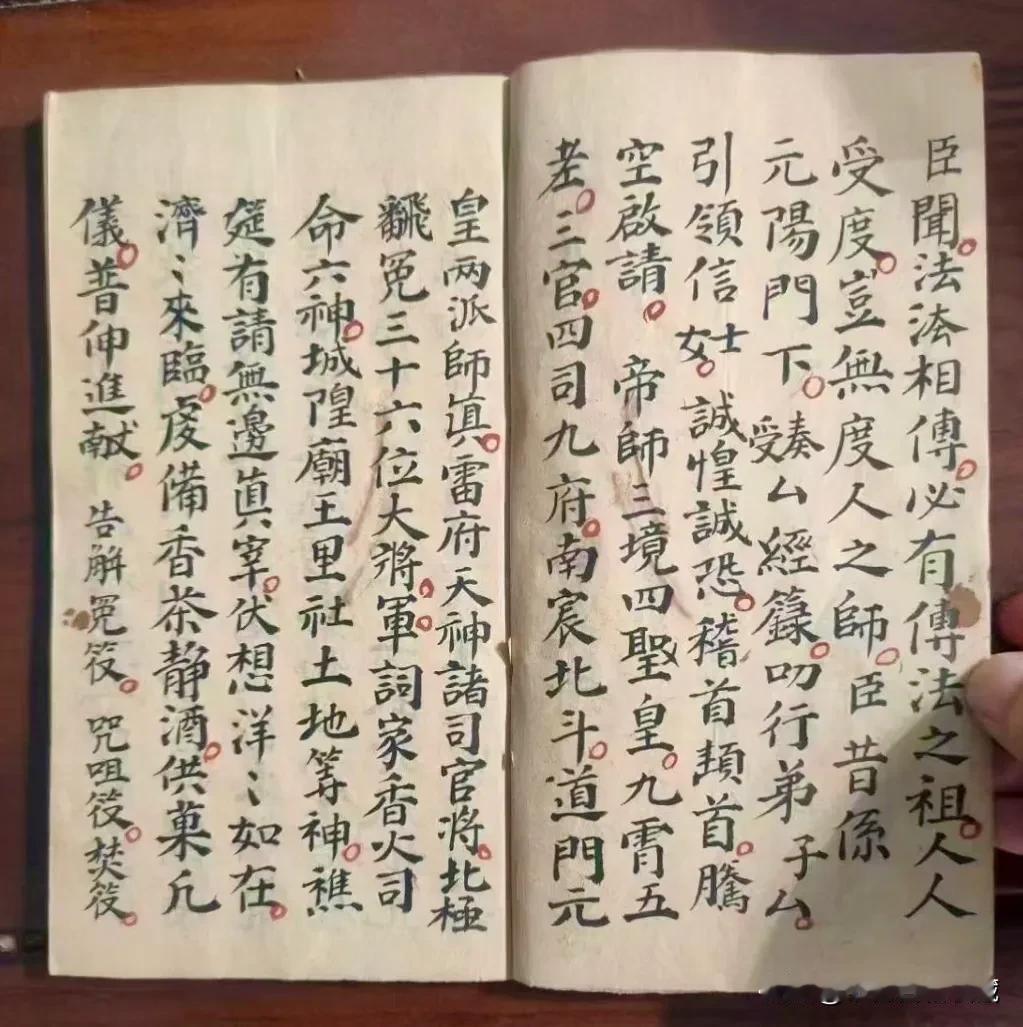 臣聞。法法相傳。必有傳法之祖。人人
受度。豈無度人之師。臣昔係
元陽門下。奏受厶經籙。叨行弟子厶。
引領信士女。誠惶誠恐。稽首頓首。騰
空啟請。帝師三境四聖皇。九霄五
老。三官。四司九府。南宸北斗。道門元
皇两派師眞。雷府天神諸司官將。北極
翻冤三十六位大將軍。詞家香火司
命六神。城隍廟王里社土地等神。醮
筵有請無邊眞宰。伏想洋〻如在。
濟〻來臨。虔備香茶静酒。供菓凡
儀。普伸進献。告解冤筊。咒咀筊。焚筊。